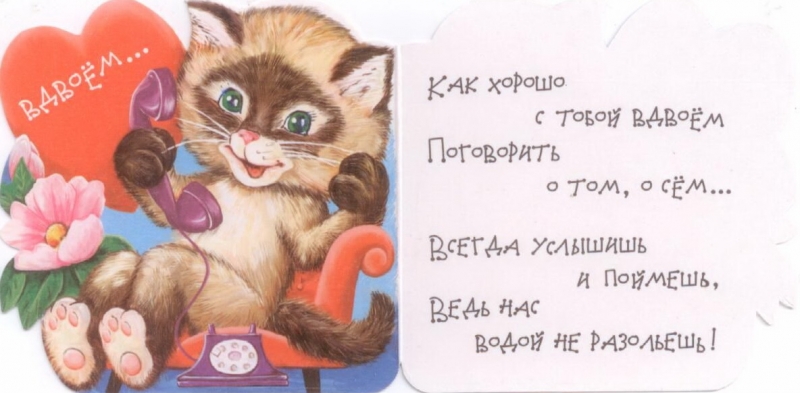 ВДВОЁМ...
КАК ХОРОШО
С ТОБОЙ ВДВОЁМ
ПОГОВОРИТЬ
О ТОМ, О СЁМ...
ВСЕГДА УСЛЫШИШЬ
И ПОЙМЕШЬ,
ВЕДЬ НАС
ВОДОЙ НЕ РАЗОЛЬЕШЬ!